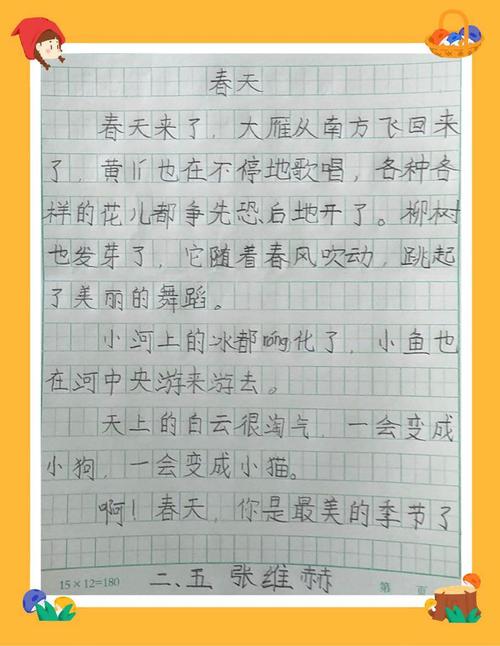 春天
春天来了，大雁从南方飞回来
了，黄丫也在不停地歌唱，各种各
样的花儿都争先恐后地开了。柳树
也发芽了，它随着春风吹动，跳起
了美丽的舞蹈。
小河上的冰都róng化了，小鱼也
在河中央游来游去。
天上的白云很淘气，一会变成
小狗，一会变成小猫。
啊！春天，你是最美的季节了
15×12=180 二、五 张维赫 第 页